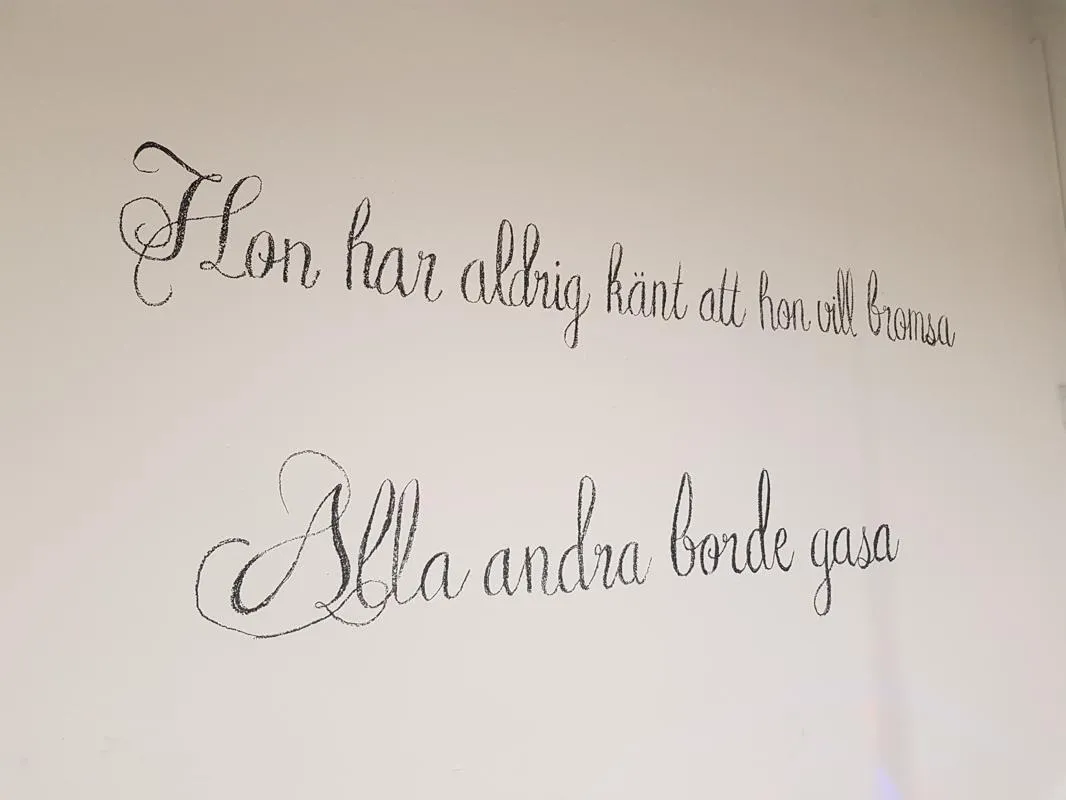 Hon har aldrig känt att hon vill bromsa
Alla andra borde gasa